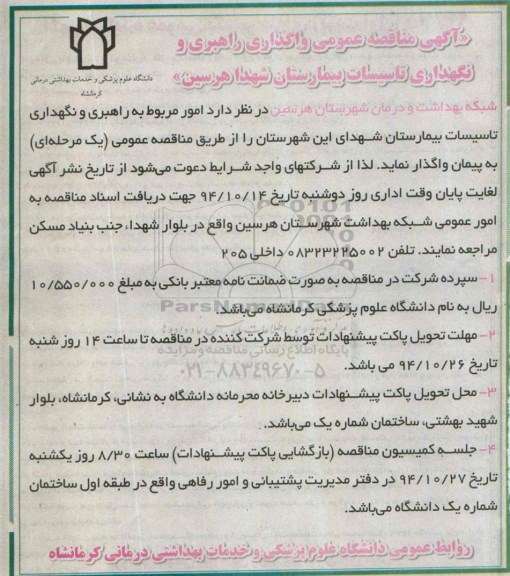 «آگهی مناقصه عمومی واگذاری راهبری و
نگهداری تاسیسات بیمارستان شهدا هرسین»
دانشگاه علوم پزشکی و خدمات بهداشتی درمانی
کرمانشاه
شبکه بهداشت و درمان شهرستان هرسین در نظر دارد امور مربوط به راهبری و نگهداری
تاسیسات بیمارستان شهدای این شهرستان را از طریق مناقصه عمومی (یک مرحله‌ای)
به پیمان واگذار نماید. لذا از شرکتهای واجد شرایط دعوت می‌شود از تاریخ نشر آگهی
لغایت پایان وقت اداری روز دوشنبه تاریخ ۹۴/۱۰/۱۴ جهت دریافت اسناد مناقصه به
امور عمومی شبکه بهداشت شهرستان هرسین واقع در بلوار شهدا، جنب بنیاد مسکن
مراجعه نمایند. تلفن ۰۸۳۲۳۲۲۵۰۰۲ داخلی ۲۰۵
۱- سپرده شرکت در مناقصه به صورت ضمانت نامه معتبر بانکی به مبلغ ۱۰/۵۵۰/۰۰۰
ریال به نام دانشگاه علوم پزشکی کرمانشاه می‌باشد.
ParsNamadData
۲- مهلت تحویل پاکت پیشنهادات توسط شرکت کننده در مناقصه تا ساعت ۱۴ روز شنبه
پایگاه اطلاع رسانی مناقصه و مزایده
تاریخ ۹۴/۱۰/۲۶ می باشد.
۰۲۱-۸۸۳۴۹۶۷۰-۵
۳- محل تحویل پاکت پیشنهادات دبیرخانه محرمانه دانشگاه به نشانی، کرمانشاه، بلوار
شهید بهشتی، ساختمان شماره یک می‌باشد.
۴- جلسه کمیسیون مناقصه (بازگشایی پاکت پیشنهادات) ساعت ۸/۳۰ روز یکشنبه
تاریخ ۹۴/۱۰/۲۷ در دفتر مدیریت پشتیبانی و امور رفاهی واقع در طبقه اول ساختمان
شماره یک دانشگاه می‌باشد.
روابط عمومی دانشگاه علوم پزشکی و خدمات بهداشتی درمانی کرمانشاه